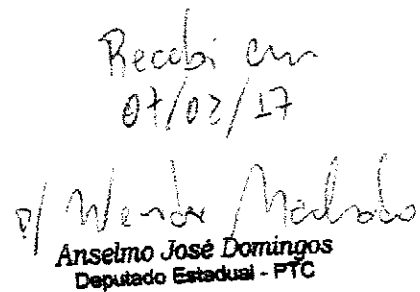 Recebi em
07/02/17
p/ Wendor Machado
Anselmo José Domingos
Deputado Estadual - PTC